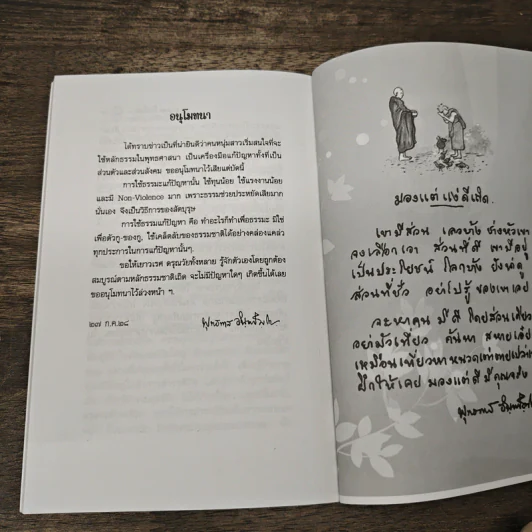 อนุโมทนา
ได้ทราบข่าวเป็นที่น่ายินดีว่าคนหนุ่มสาวเริ่มสนใจที่จะ
ใช้หลักธรรมในพุทธศาสนา เป็นเครื่องมือแก้ปัญหาทั้งที่เป็น
ส่วนตัวและส่วนสังคม ขออนุโมทนาไว้เสียแต่บัดนี้
การใช้ธรรมะแก้ปัญหานั้น ใช้ทุนน้อย ใช้แรงงานน้อย
และมี Non-Violence มาก เพราะธรรมะช่วยประหยัดเสียมาก
นั่นเอง จึงเป็นวิธีการของสัตบุรุษ
การใช้ธรรมะแก้ปัญหา คือ ทำอะไรก็ทำเพื่อธรรมะ มิใช่
เพื่อตัวกู-ของกู, ใช้เคล็ดลับของธรรมชาติได้อย่างคล่องแคล่ว
ทุกประการในการแก้ปัญหานั้นๆ
ขอให้เยาวเรศ ดรุณวัยทั้งหลาย รู้จักตัวเองโดยถูกต้อง
สมบูรณ์ตามหลักธรรมชาติเถิด จะไม่มีปัญหาใดๆ เกิดขึ้นได้เลย
ขออนุโมทนาไว้ล่วงหน้า ฯ
๒๗ ก.ค.๒๘
พุทธทาส อินทปัญโญ
มองแต่ แง่ดีเถิด
เขามีส่วน เลวบ้าง ช่างหัวเขา
จงเลือกเอา ส่วนที่ดี เขามีอยู่
เป็นประโยชน์ โลกบ้าง ยังน่าดู
ส่วนที่ชั่ว อย่าไปรู้ ของเขาเลย
จะหาคน มีดี โดยส่วนเดียว
อย่ามัวเที่ยว ค้นหา สหายเอ๋ย
เหมือนเที่ยวหา หนวดเต่า ตายเปล่าเลย
ฝึกให้เคย มองแต่ดี มีคุณจริง
พุทธทาส อินทปัญโญ